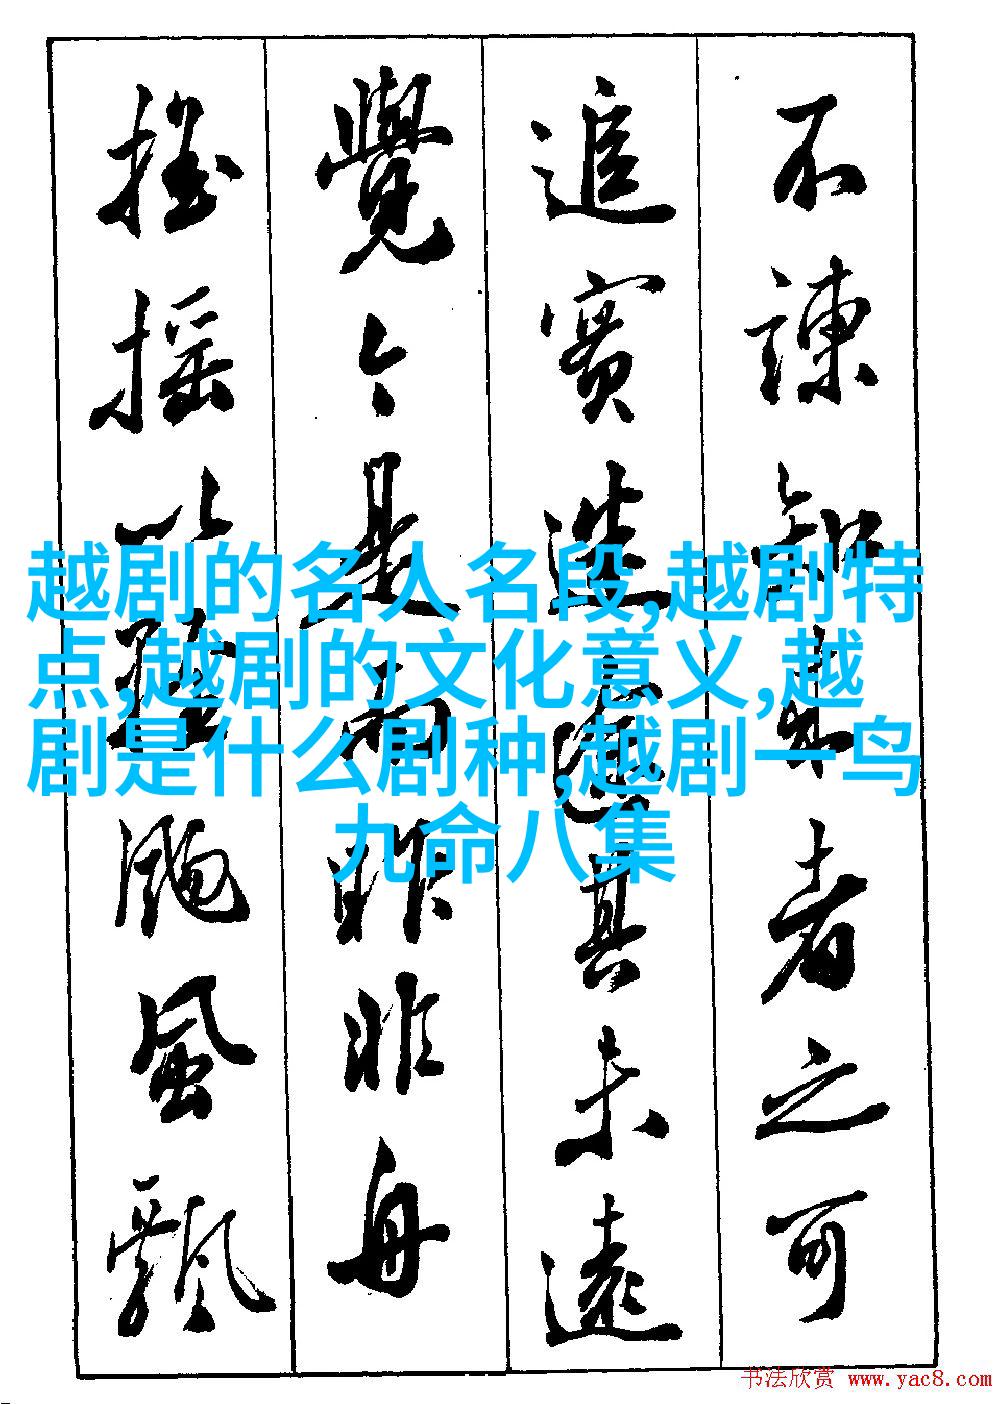 不諫知來者之可
追實迷途其未遠
覺今是而昨非舟
搖搖以輕颺風飄
越剧的名人名段,越剧特
点,越剧的文化意义,越
剧是什么剧种,越剧一鸟
九命八集
书法欣赏 www.yac8.com